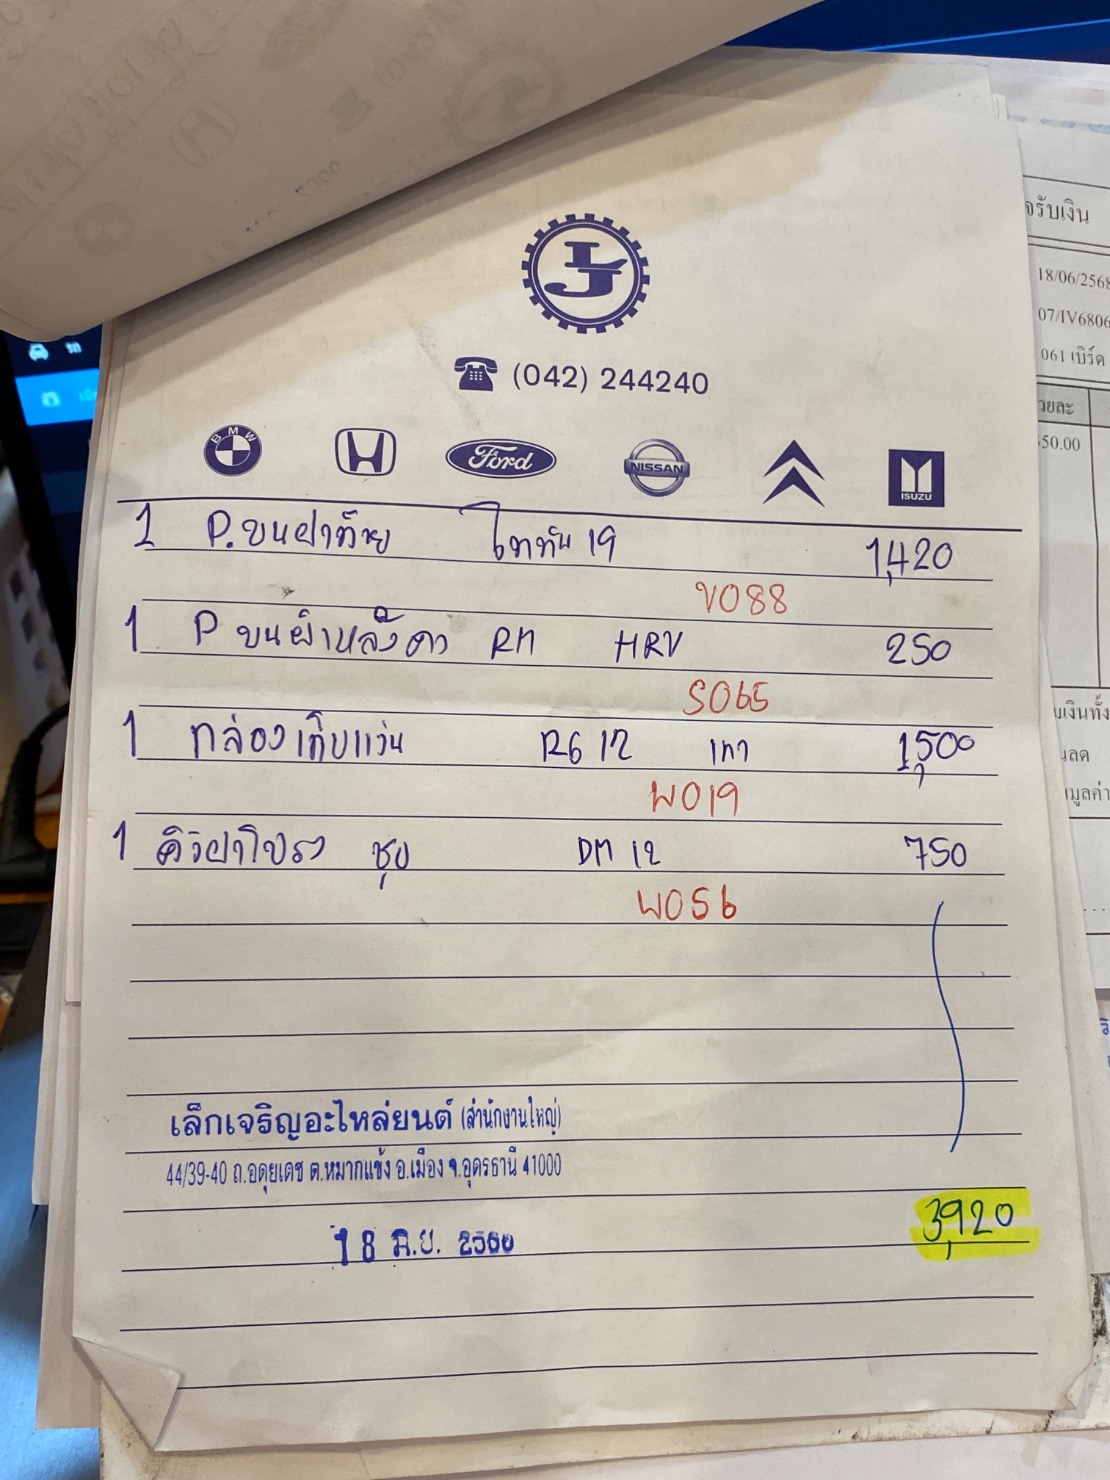 LJ
(042) 244240
BMW
Ford
NISSAN
ISUZU
1 P.ขนฝาท้าย ไททัน 19 1,420
V088
1 P ขนผ้าหลังคา RM HRV 250
S065
1 กล่องเก็บแว่น R6 12 เทา 1,500
W019
1 คิ้วฝาโปรง ชุบ DM 12 750
W056
เล็กเจริญอะไหล่ยนต์ (สำนักงานใหญ่)
44/39-40 ถ.อดุยเดช ต.หมากแข้ง อ.เมือง จ.อุดรธานี 41000
18 มิ.ย.
3,920
รับเงิน
18/06/2568
07/IV6806
061 เบิร์ด
วยละ
50.00